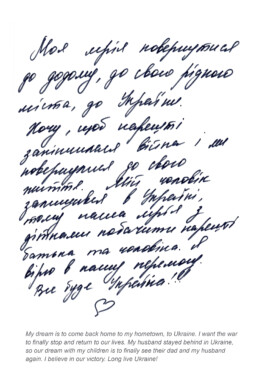 Моя мрія повернутися
до додому, до свого рідного
міста, до України.
Хочу, щоб нарешті
закінчилася війна і ми
повернулися до свого
життя. Мій чоловік
залишився в Україні,
тому наша мрія з
дітками побачити нарешті
батька та чоловіка. Я
вірю в нашу перемогу.
Все буде Україна!!
My dream is to come back home to my hometown, to Ukraine. I want the war
to finally stop and return to our lives. My husband stayed behind in Ukraine,
so our dream with my children is to finally see their dad and my husband
again. I believe in our victory. Long live Ukraine!